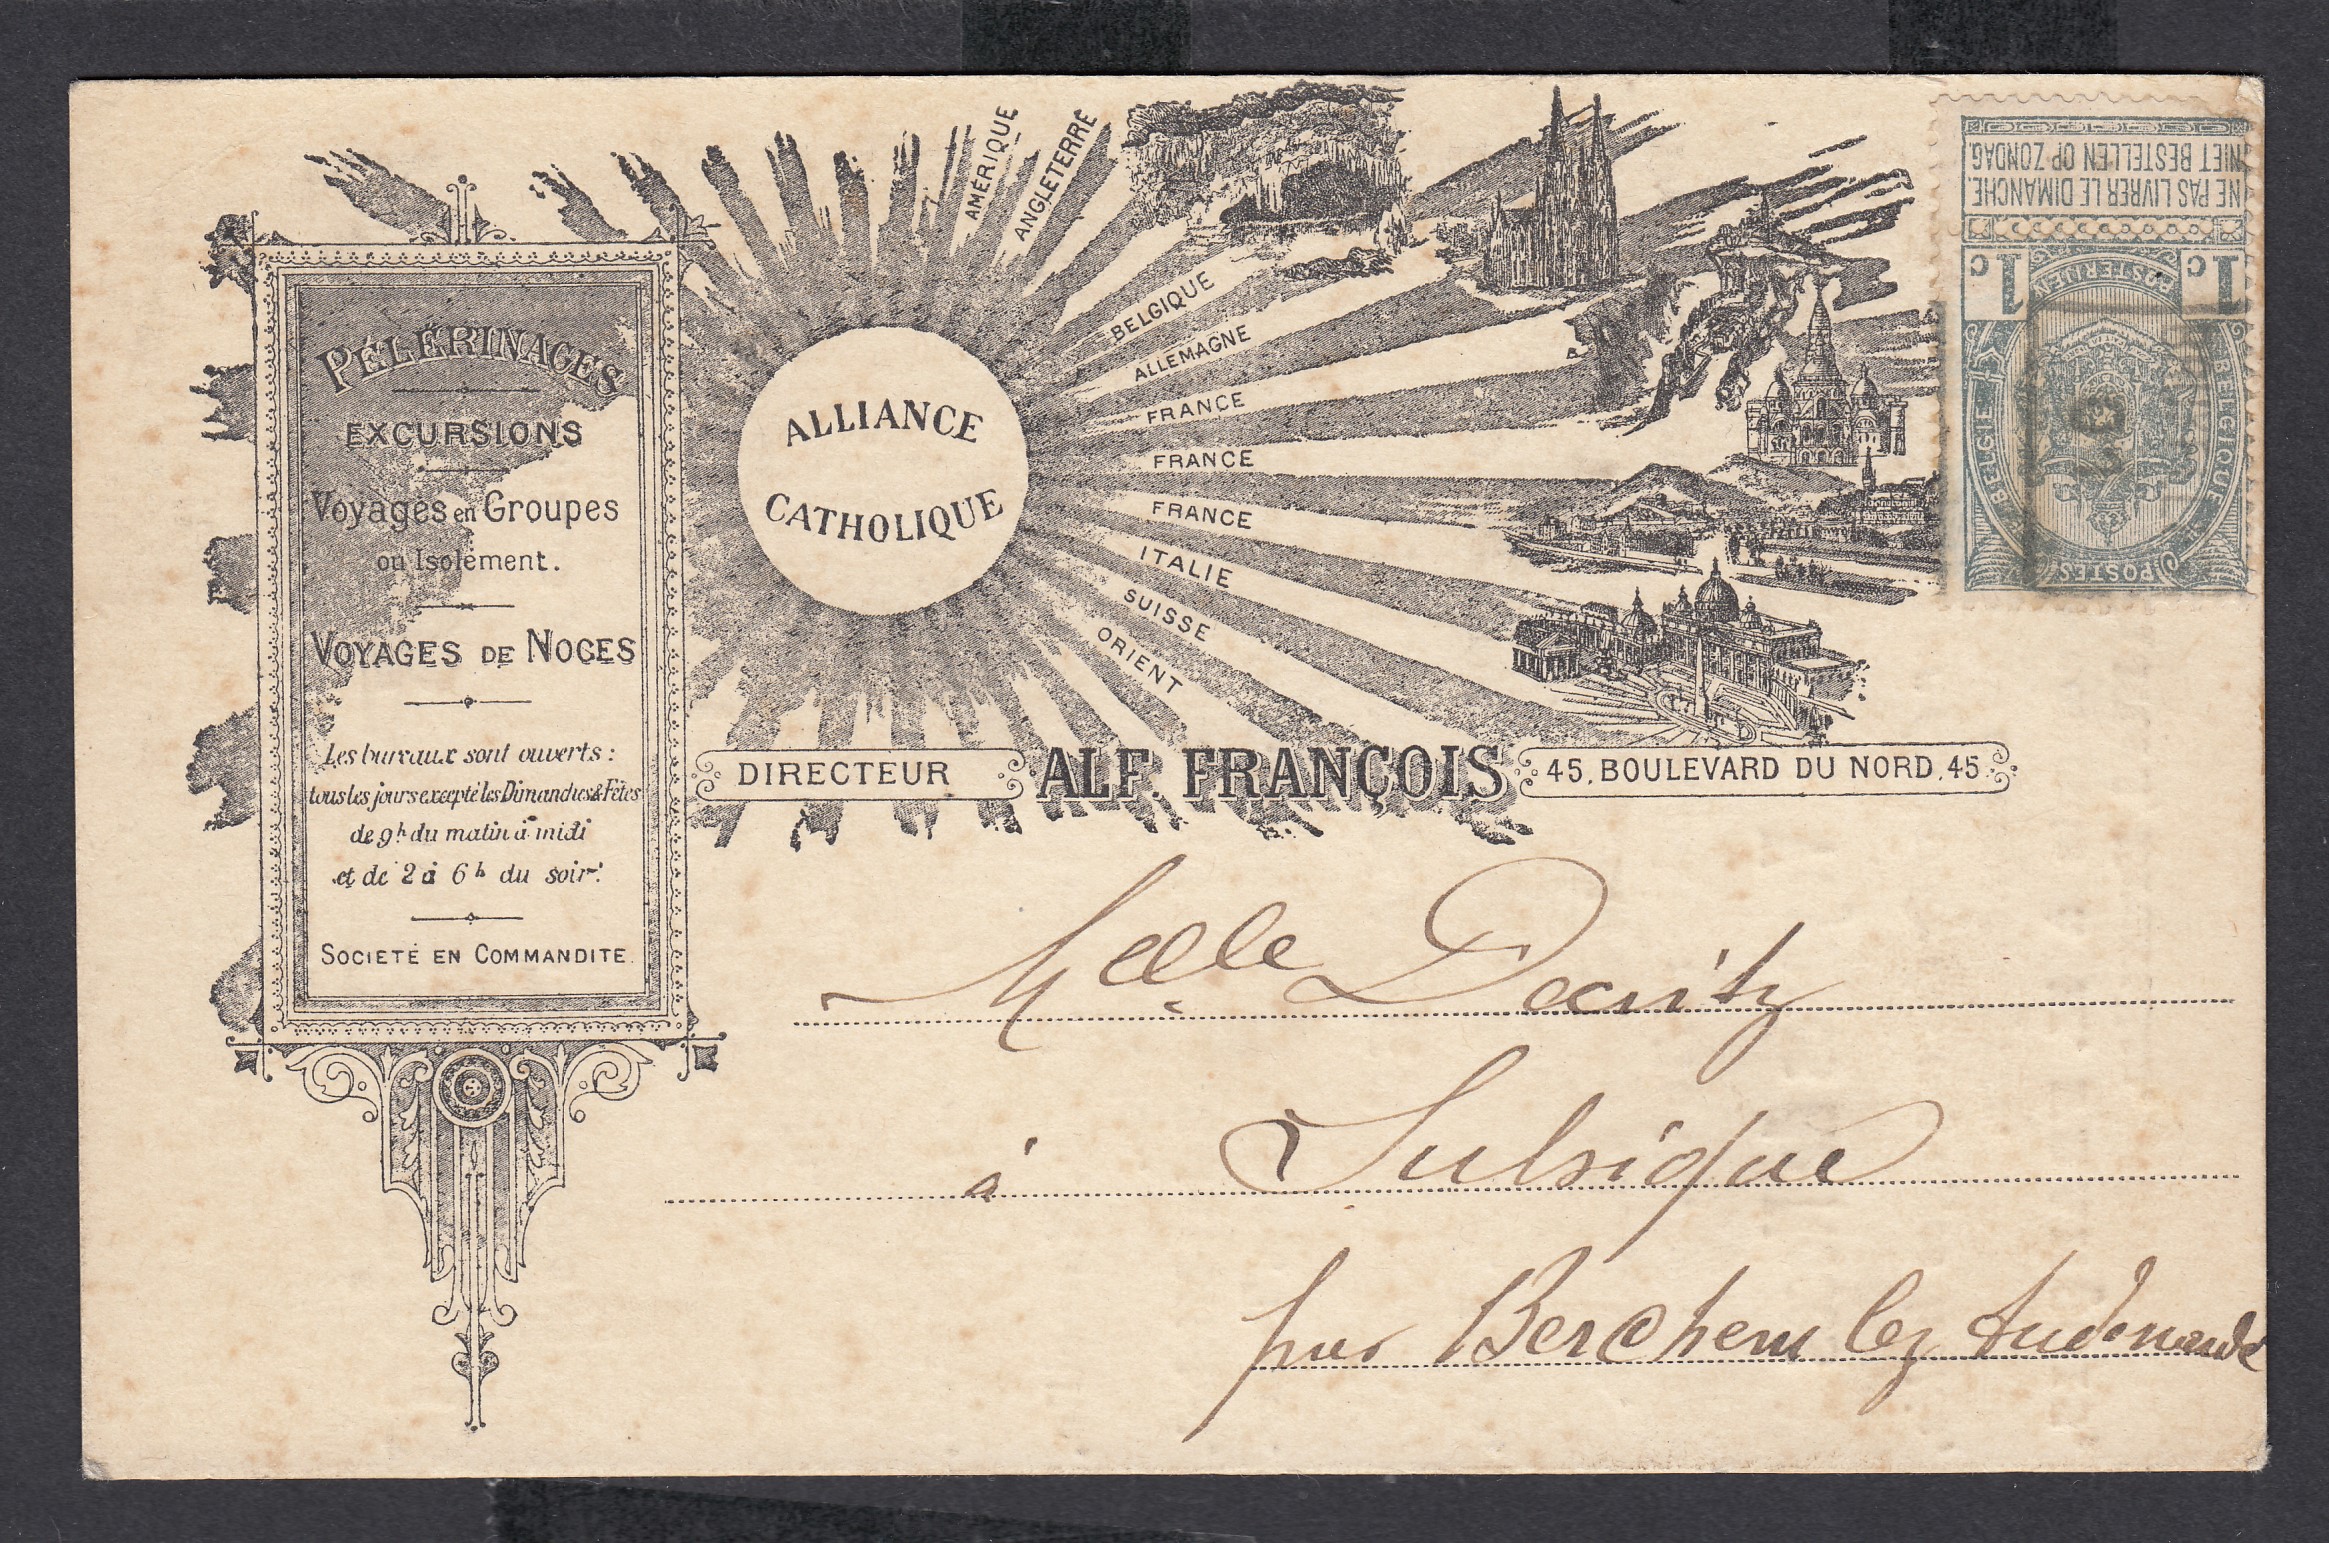 PÉLÉRINAGES
EXCURSIONS
Voyages en Groupes
ou Isolément.
VOYAGES DE NOCES
Les bureaux sont ouverts :
tous les jours excepté les Dimanches & Fêtes
de 9h du matin à midi
et de 2 à 6h du soir.
SOCIÉTÉ EN COMMANDITE.
ALLIANCE
CATHOLIQUE
AMÉRIQUE
ANGLETERRE
BELGIQUE
ALLEMAGNE
FRANCE
FRANCE
FRANCE
ITALIE
SUISSE
ORIENT
DIRECTEUR
ALF. FRANÇOIS
45, BOULEVARD DU NORD, 45
NE PAS LIVRER LE DIMANCHE.
NIET BESTELLEN OP ZONDAG.
POSTES
BELGIQUE
BELGIE
POSTERIJEN
1c
1c
Melle
à Sulsique
par Berchem lez Audenaude